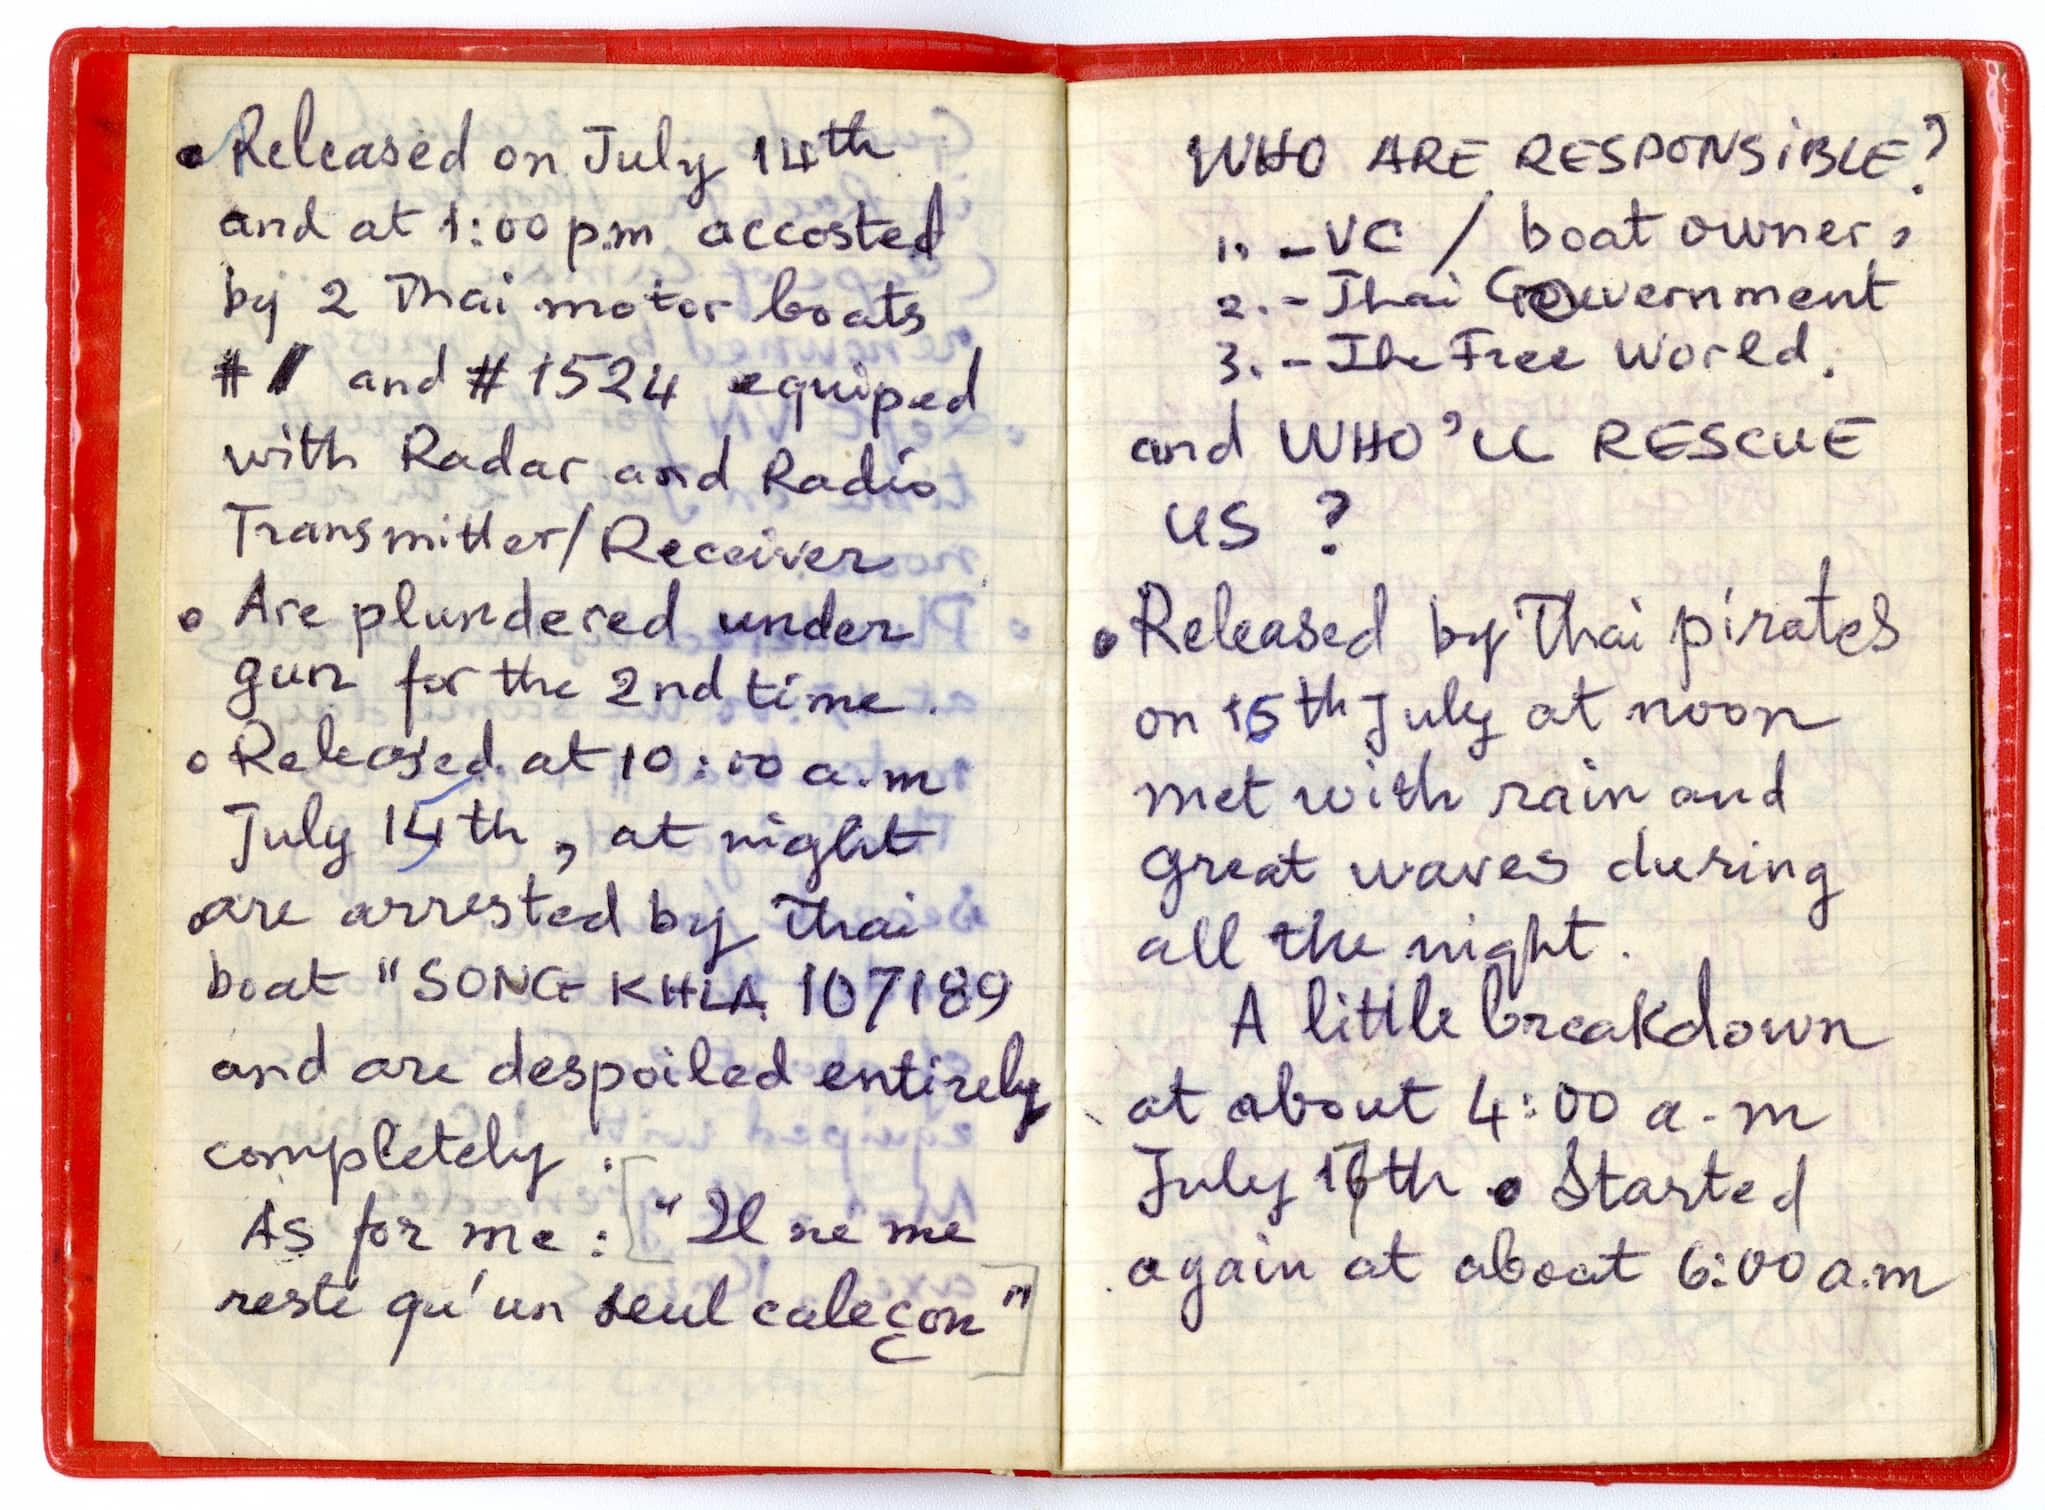 • Released on July 14th
and at 1:00 p.m accosted
by 2 Thai motor boats
#1 and #1524 equiped
with Radar and Radio
Transmitter/Receiver
• Are plundered under
gun for the 2nd time.
• Released at 10:00 a.m
July 15th, at night
are arrested by Thai
boat "SONG KHLA 107189
and are despoiled entirely
completely.
As for me: ["Il ne me
reste qu'un seul caleçon"]
WHO ARE RESPONSIBLE?
1. - VC / boat owners
2. - Thai Government
3. - The Free World.
and WHO'LL RESCUE
US ?
• Released by Thai pirates
on 15th July at noon
met with rain and
great waves during
all the night.
A little breakdown
at about 4:00 a.m
July 16th • Started
again at about 6:00 a.m